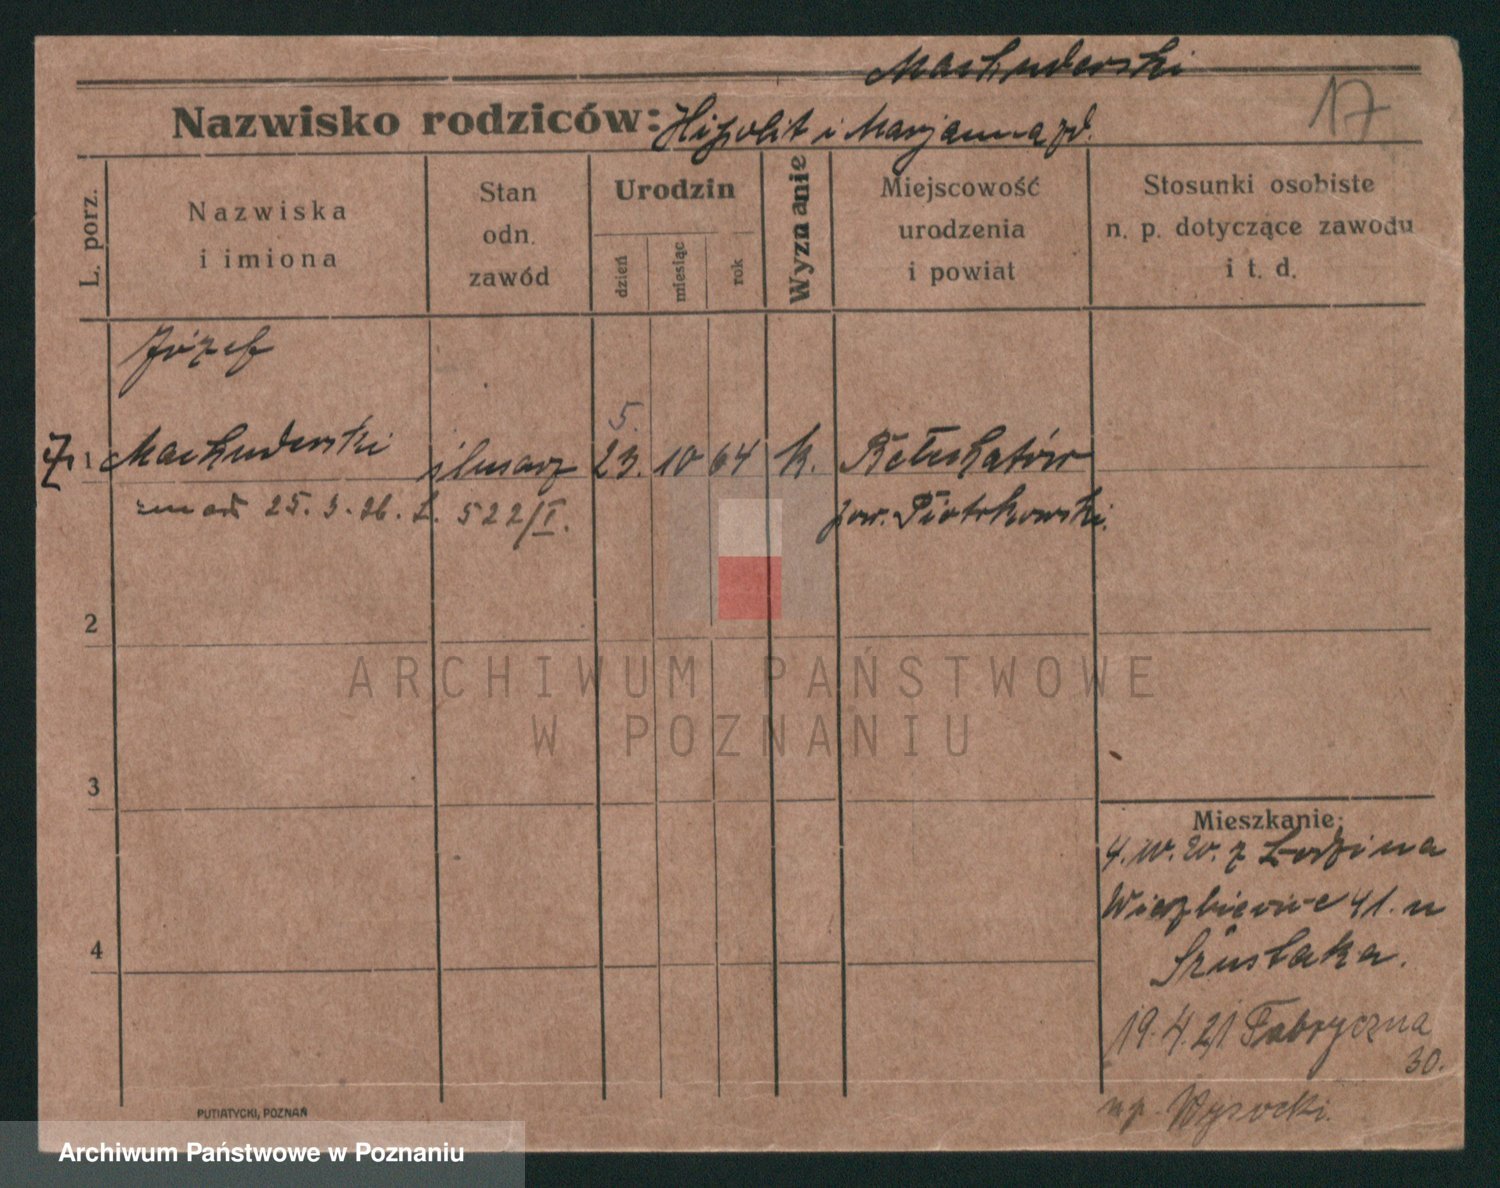 Machuderski
17
Nazwisko rodziców: Hipolit i Marjanna zd.
L. porz.
Nazwiska
i imiona
Stan
odn.
zawód
Urodzin
dzień
miesiąc
rok
Wyznanie
Miejscowość
urodzenia
i powiat
Stosunki osobiste
n. p. dotyczące zawodu
i t. d.
Józef
5.
1 Machuderski ślusarz 23. 10 64 k. Bełchatów
zmarł 25. 3. 26. L. 522/I. pow. Piotrkowski.
2
3
4
Mieszkanie:
4. 10. 20. z Łodzi na
Wierzbięcice 41. u
19. 4. 21 Fabryczna
30.
np. Wysocki.
PUTIATYCKI, POZNAŃ
ARCHIWUM PAŃSTWOWE
W POZNANIU
Archiwum Państwowe w Poznaniu